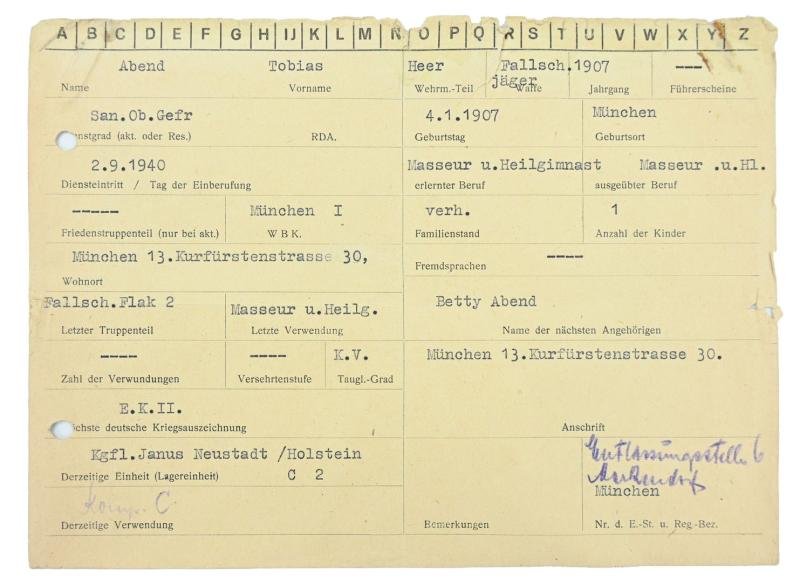 A B C D E F G H IJ K L M N O P Q R S T U V W X Y Z
Abend Tobias Heer Fallsch. 1907 ---
jäger
Name Vorname Wehrm.-Teil Waffe Jahrgang Führerscheine
San.Ob.Gefr 4.1.1907 München
nstgrad (akt. oder Res.) RDA. Geburtstag Geburtsort
2.9.1940 Masseur u.Heilgimnast Masseur .u.Hl.
Diensteintritt / Tag der Einberufung erlernter Beruf ausgeübter Beruf
----- München I verh. 1
Friedenstruppenteil (nur bei akt.) W B K. Familienstand Anzahl der Kinder
München 13.Kurfürstenstrasse 30, ----
Wohnort Fremdsprachen
Fallsch.Flak 2 Masseur u.Heilg. Betty Abend
Letzter Truppenteil Letzte Verwendung Name der nächsten Angehörigen
---- ---- K.V. München 13.Kurfürstenstrasse 30.
Zahl der Verwundungen Versehrtenstufe Taugl.-Grad
E.K.II.
chste deutsche Kriegsauszeichnung Anschrift
Kgfl.Janus Neustadt /Holstein Entlassungsstelle 6
Derzeitige Einheit (Lagereinheit) C 2
Komp. C München
Derzeitige Verwendung Bemerkungen Nr. d. E.-St. u. Reg-Bez.